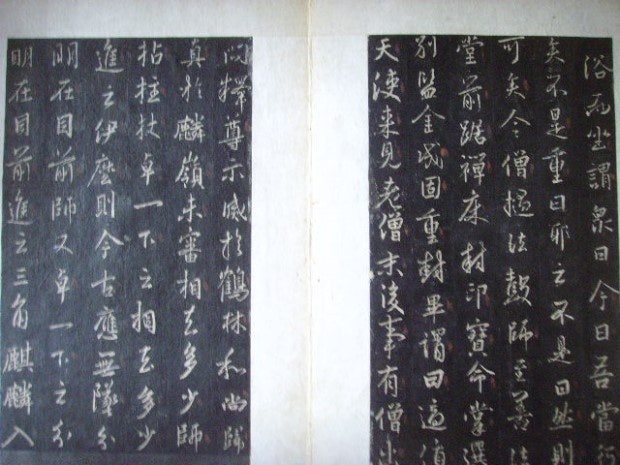 浴而坐謂泉曰今日吾當行
矣不是重日耶云不是曰然則
可矣令僧撾法鼓師至善法
堂前踞禪床封印寶命掌選
別監金戊固重封畢謂曰適值
天使來見老僧末後事有僧出
問釋尊示滅於鶴林和尚歸
真於麟嶺未審相去多少師
拈柱杖卓一下云相去多少
進云伊麼則今古應無墜分
明在目前師又卓一下云分
明在目前進云三角麒麟入